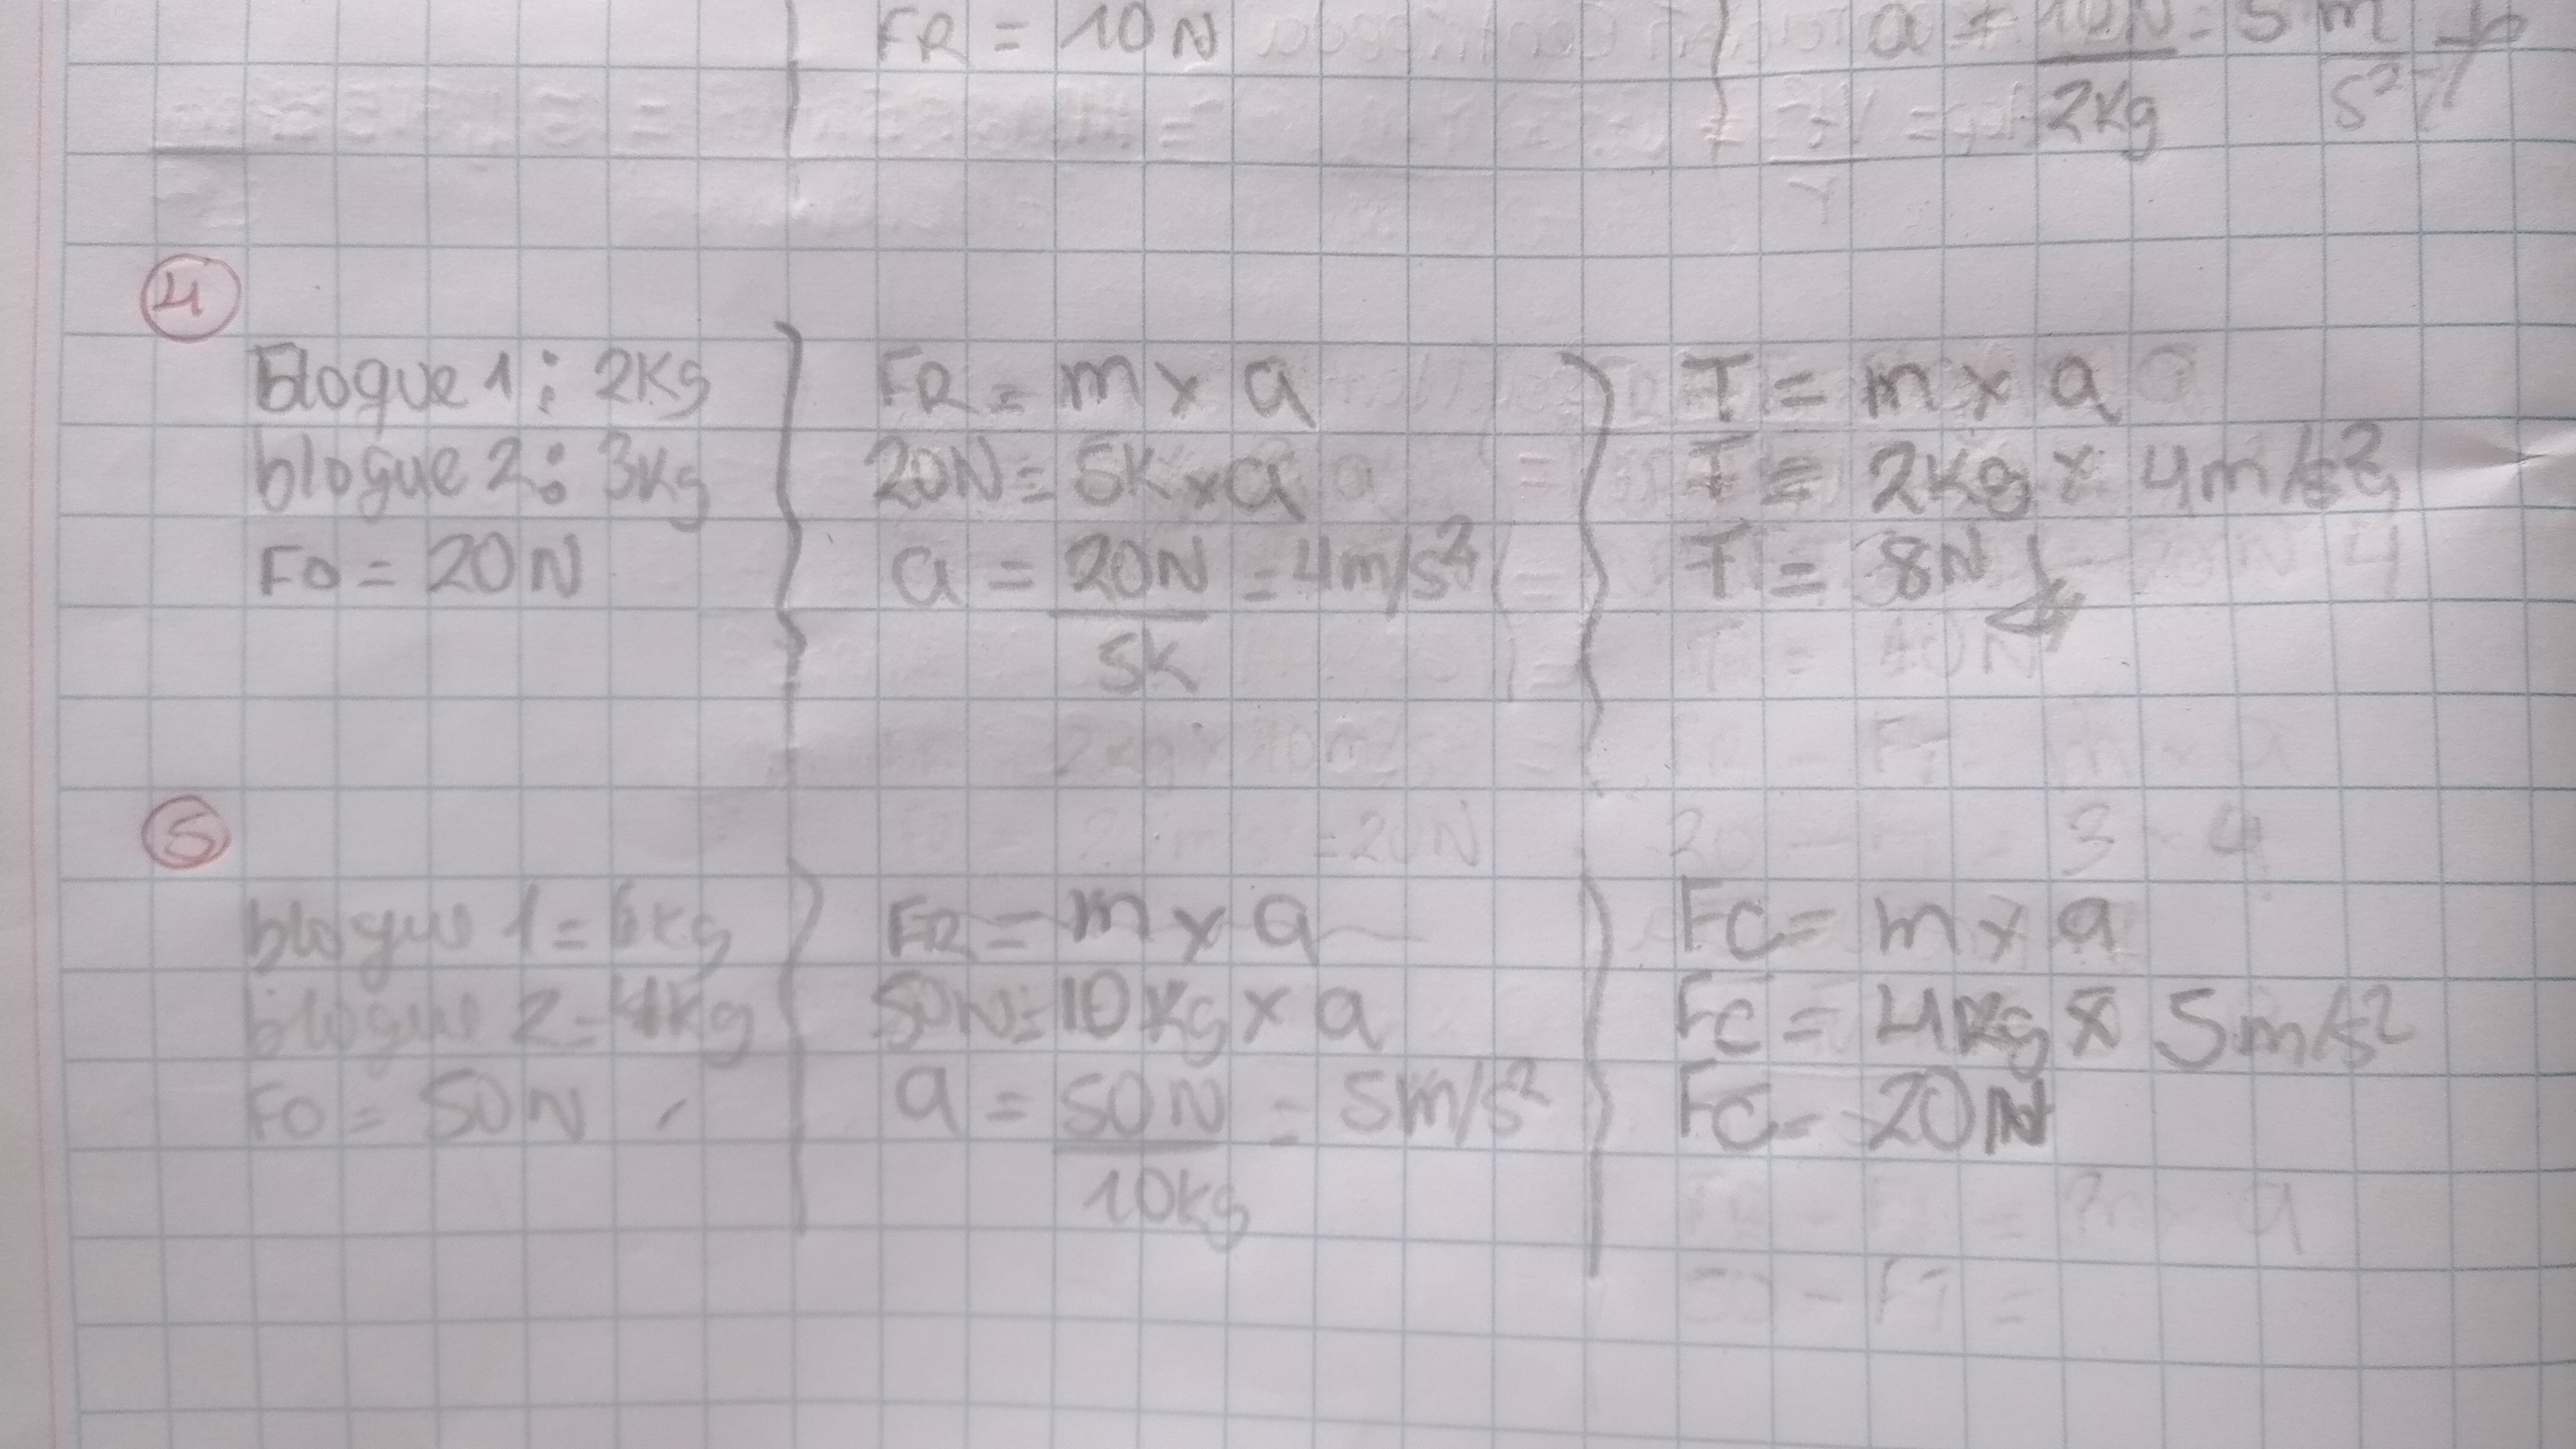 FR = 10N
a = 10N = 5 m
2Kg s²
4
Bloque 1: 2Kg
bloque 2: 3Kg
FO = 20N
FR = m x a
20N = 5K x a
a = 20N = 4m/s²
5K
T = m x a
T = 2Kg x 4m/s²
T = 8N
5
bloque 1 = 6Kg
bloque 2 = 4Kg
FO = 50N
FR = m x a
50N = 10Kg x a
a = 50N = 5m/s²
10Kg
FC = m x a
FC = 4Kg x 5m/s²
FC = 20N